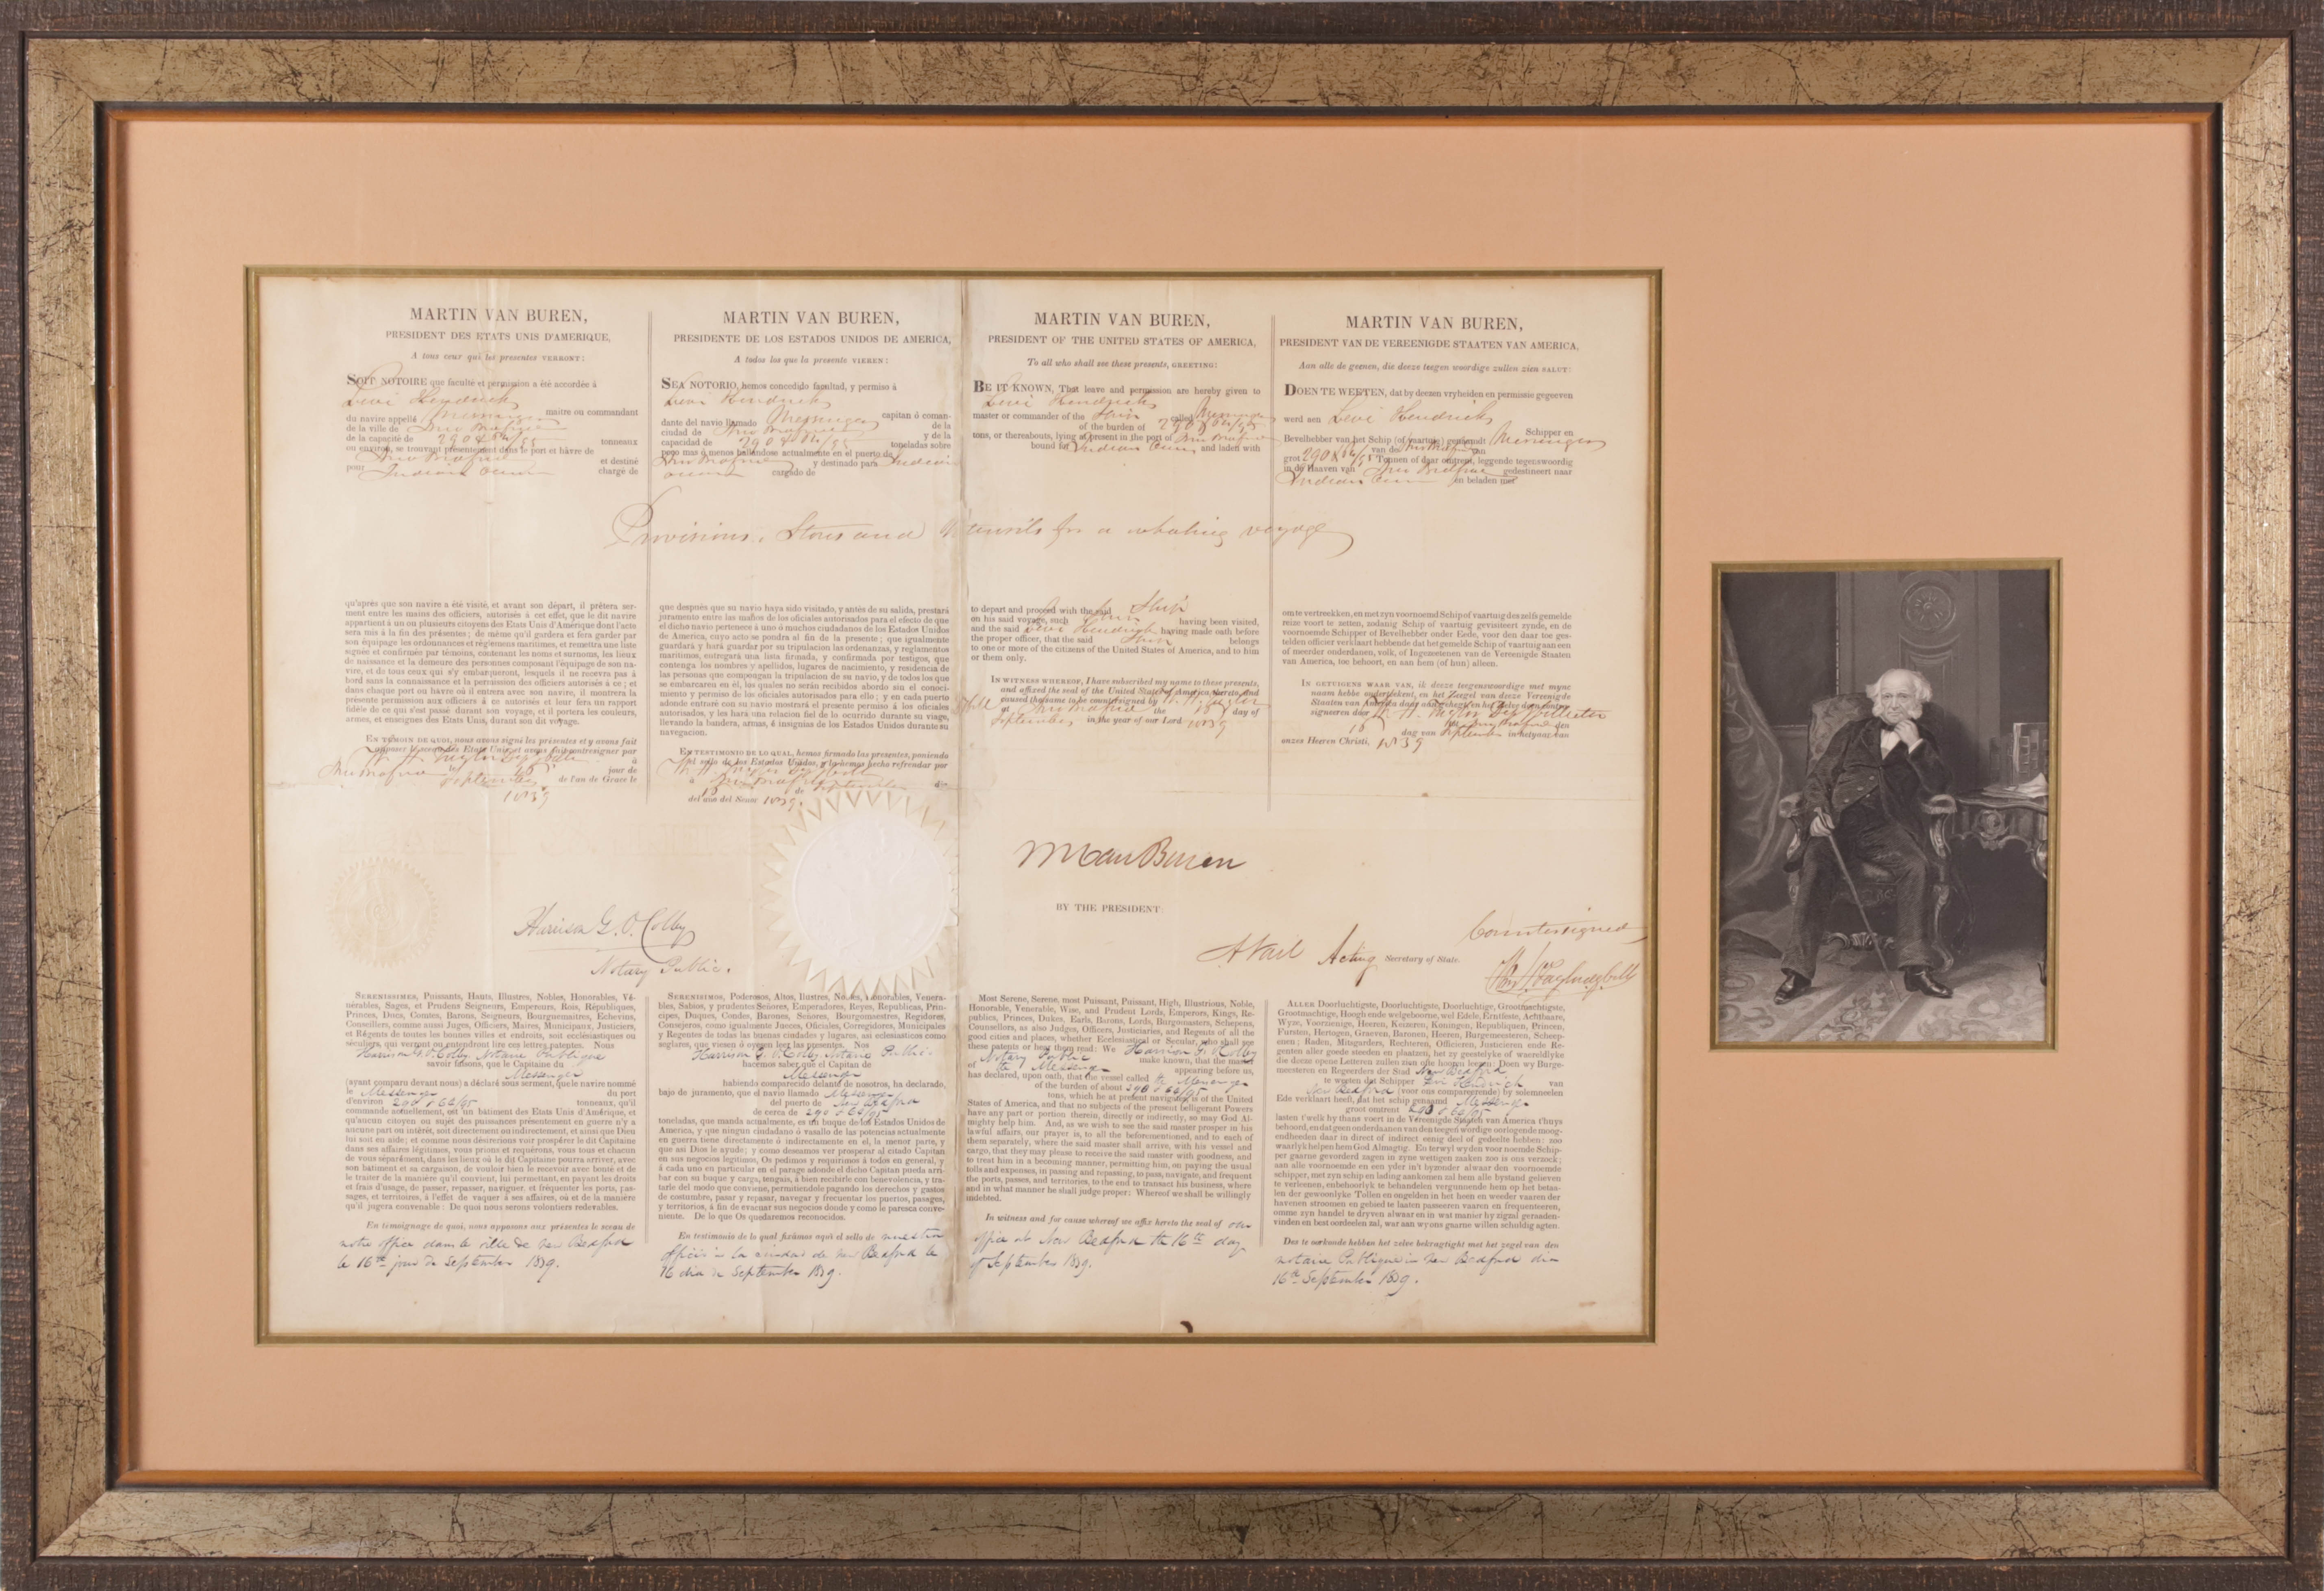 MARTIN VAN BUREN,
PRESIDENT DES ETATS UNIS D'AMERIQUE,
A tous ceux qui les presentes VERRONT:
SOIT NOTOIRE que faculté et permission a été accordée à
Levi Hendrick
maitre ou commandant
du navire appellé Messenger
de la ville de New Bedford
de la capacité de 290 & 66/95 tonneaux
ou environ, se trouvant présentement dans le port et hâvre de
New Bedford et destiné
pour Indian Ocean chargé de
MARTIN VAN BUREN,
PRESIDENTE DE LOS ESTADOS UNIDOS DE AMERICA,
A todos los que la presente VIEREN:
SEA NOTORIO, hemos concedido facultad, y permiso á
Levi Hendrick
capitan ó coman-
dante del navio llamado Messenger de la
ciudad de New Bedford y de la
capacidad de 290 & 66/95 toneladas sobre
poco mas ó menos hallandose actualmente en el puerto de
New Bedford y destinado para Indian
Ocean cargado de
MARTIN VAN BUREN,
PRESIDENT OF THE UNITED STATES OF AMERICA,
To all who shall see these presents, GREETING:
BE IT KNOWN, That leave and permission are hereby given to
Levi Hendrick
master or commander of the Ship called Messenger
of the burden of 290 & 66/95
tons, or thereabouts, lying at present in the port of New Bedford
bound for Indian Ocean and laden with
MARTIN VAN BUREN,
PRESIDENT VAN DE VEREENIGDE STAATEN VAN AMERICA,
Aan alle de geenen, die deeze teegen woordige zullen zien SALUT:
DOEN TE WEETEN, dat by deezen vryheiden en permissie gegeeven
werd aen Levi Hendrick
Schipper en
Bevelhebber van het Schip (of vaartuig) genaamt Messenger
van de New Bedford van
grot 290 & 66/95 Tonnen of daar omtrent, leggende tegenswoordig
in de Haaven van New Bedford gedestineert naar
Indian Ocean en beladen met
Provisions, Stores and Utensils for a whaling voyage
qu'après que son navire a été visité, et avant son départ, il prêtera ser-
ment entre les mains des officiers, autorisés à cet effet, que le dit navire
appartient à un ou plusieurs citoyens des Etats Unis d'Amérique dont l'acte
sera mis à la fin des présentes; de même qu'il gardera et fera garder par
son équipage les ordonnances et réglemens maritimes, et remettra une liste
signée et confirmée par témoins, contenant les noms et surnoms, les lieux
de naissance et la demeure des personnes composant l'équipage de son na-
vire, et de tous ceux qui s'y embarqueront, lesquels il ne recevra pas à
bord sans la connaissance et la permission des officiers autorisés à ce; et
dans chaque port ou hâvre où il entrera avec son navire, il montrera la
présente permission aux officiers à ce autorisés et leur fera un rapport
fidèle de ce qui s'est passé durant son voyage, et il portera les couleurs,
armes, et enseignes des Etats Unis, durant son dit voyage.
EN TÉMOIN DE QUOI, nous avons signé les présentes et y avons fait
apposer le sceau des Etats Unis, et avons fait contresigner par
à
New Bedford le 16 jour de
September de l'an de Grace le
1839
que después que su navio haya sido visitado, y antés de su salida, prestará
juramento entre las manos de los oficiales autorizados para el efecto de que
el dicho navio pertenece á uno ó muchos ciudadanos de los Estados Unidos
de America, cuyo acto se pondra al fin de la presente; que igualmente
guardará y hará guardar por su tripulacion las ordenanzas, y reglamentos
maritimos, entregará una lista firmada, y confirmada por testigos, que
contenga los nombres y apellidos, lugares de nacimiento, y residencia de
las personas que compongan la tripulacion de su navio, y de todos los que
se embarcaren en él, los quales no serán recibidos abordo sin el conoci-
miento y permiso de los oficiales autorisados para ello; y en cada puerto
adonde entraré con su navio mostrará el presente permiso á los oficiales
autorisados, y les hará una relacion fiel de lo ocurrido durante su viage,
llevando la bandera, armas, é insignias de los Estados Unidos durante su
navegacion.
EN TESTIMONIO DE LO QUAL, hemos firmado las presentes, poniendo
el sello de los Estados Unidos, y la hemos hecha refrendar por
á New Bedford dia
de September
del año del Senor 1839.
to depart and proceed with the said Ship
on his said voyage, such Ship having been visited,
and the said Levi Hendrick having made oath before
the proper officer, that the said Ship belongs
to one or more of the citizens of the United States of America, and to him
or them only.
IN WITNESS WHEREOF, I have subscribed my name to these presents,
and affixed the seal of the United States of America thereto, and
caused the same to be countersigned by
at New Bedford the 16 day of
September in the year of our Lord 1839
om te vertreekken, en met zyn voornoemd Schip of vaartuig des zelfs gemelde
reize voort te zetten, zodanig Schip of vaartuig gevisiteert zynde, en de
voornoemde Schipper of Bevelhebber onder Eede, voor den daar toe ges-
telden officier verklaart hebbende dat het gemelde Schip of vaartuig aan een
of meerder onderdanen, volk, of Ingezeetenen van de Vereenigde Staaten
van America, toe behoort, en aan hem (of hun) alleen.
IN GETUIGENS WAAR VAN, ik deeze teegenswoordige met myne
naam hebbe ondertekent, en het Zeegel van deeze Vereenigde
Staaten van America daar aan gehegt en het zelve doen contra-
signeeren door
New Bedford den
16 dag van September in het yaar van
onzes Heeren Christi, 1839
M Van Buren
BY THE PRESIDENT:
Harrison G. O. Colby
Notary Public.
A Vail Acting Secretary of State.
Countersigned
SERENISSIMES, Puissants, Hauts, Illustres, Nobles, Honorables, Vé-
nérables, Sages, et Prudens Seigneurs, Empereurs, Rois, Républiques,
Princes, Ducs, Comtes, Barons, Seigneurs, Bourguemaitres, Echevins,
Conseillers, comme aussi Juges, Officiers, Maires, Municipaux, Justiciers,
et Régents de toutes les bonnes villes et endroits, soit ecclésiastiques ou
séculiers, qui verront ou entendront lire ces lettres patentes. Nous
Harrison G. O. Colby, Notaire Publique
savoir faisons, que le Capitaine du
Messenger
(ayant comparu devant nous) a déclaré sous serment, que le navire nommé
le Messenger du port
d'environ 290 & 66/95 tonneaux, qu'il
commande actuellement, est un bâtiment des Etats Unis d'Amérique, et
qu'aucun citoyen ou sujet des puissances présentement en guerre n'y a
aucune part ou intérêt, soit directement ou indirectement, et ainsi que Dieu
lui soit en aide; et comme nous désirerions voir prospérer le dit Capitaine
dans ses affaires légitimes, vous prions et requérons, vous tous et chacun
de vous séparément, dans les lieux où le dit Capitaine pourra arriver, avec
son bâtiment et sa cargaison, de vouloir bien le recevoir avec bonté et de
le traiter de la manière qu'il convient, lui permettant, en payant les droits
et frais d'usage, de passer, repasser, naviguer, et fréquenter les ports, pas-
sages, et territoires, à l'effet de vaquer à ses affaires, où et de la manière
qu'il jugera convenable: De quoi nous serons volontiers redevables.
En témoignage de quoi, nous apposons aux présentes le sceau de
notre office dans le ville de New Bedford
le 16th jour de September 1839.
SERENISIMOS, Poderosos, Altos, Ilustres, Nobles, Honorables, Venera-
bles, Sabios, y prudentes Señores, Emperadores, Reyes, Republicas, Prin-
cipes, Duques, Condes, Barones, Señores, Bourgomaestres, Regidores,
Consejeros, como igualmente Jueces, Oficiales, Corregidores, Municipales
y Regentes de todas las buenas ciudades y lugares, asi eclesiasticos como
seglares, que viesen ó oyesen leer las presentes. Nos
Harrison G. O. Colby, Notario Publico
hacemos saber que el Capitan de
Messenger
habiendo comparecido delante de nosotros, ha declarado,
bajo de juramento, que el navio llamado Messenger
del puerto de New Bedford
de cerca de 290 & 66/95
toneladas, que manda actualmente, es un buque de los Estados Unidos de
America, y que ningun ciudadano ó vasallo de las potencias actualmente
en guerra tiene directamente ó indirectamente en el, la menor parte, y
que asi Dios le ayude; y como deseamos ver prosperar al citado Capitan
en sus negocios legitimos, Os pedimos y requirimos á todos en general, y
á cada uno en particular en el parage adonde el dicho Capitan pueda arri-
bar con su buque y carga, tengais, á bien recibirle con benevolencia, y tra-
tarle del modo que conviene, permitiendole pagando los derechos y gastos
de costumbre, pasar y repasar, navegar y frecuentar los puertos, pasages,
y territorios, á fin de evacuar sus negocios donde y como le paresca conve-
niente. De lo que Os quedaremos reconocidos.
En testimonio de lo qual fixámos aquí el sello de nuestra
officio in la ciudad de New Bedford le
16 dia de September 1839.
Most Serene, Serene, most Puissant, Puissant, High, Illustrious, Noble,
Honorable, Venerable, Wise, and Prudent Lords, Emperors, Kings, Re-
publics, Princes, Dukes, Earls, Barons, Lords, Burgomasters, Schepens,
Counsellors, as also Judges, Officers, Justiciaries, and Regents of all the
good cities and places, whether Ecclesiastical or Secular, who shall see
these patents or hear them read: We Harrison G. O. Colby
Notary Public make known, that the master
of the Messenger appearing before us,
has declared, upon oath, that the vessel called the Messenger
of the burden of about 290 & 66/95
tons, which he at present navigates, is of the United
States of America, and that no subjects of the present belligerant Powers
have any part or portion therein, directly or indirectly, so may God Al-
mighty help him. And, as we wish to see the said master prosper in his
lawful affairs, our prayer is, to all the beforementioned, and to each of
them separately, where the said master shall arrive, with his vessel and
cargo, that they may please to receive the said master with goodness, and
to treat him in a becoming manner, permitting him, on paying the usual
tolls and expenses, in passing and repassing, to pass, navigate, and frequent
the ports, passes, and territories, to the end to transact his business, where
and in what manner he shall judge proper: Whereof we shall be willingly
indebted.
In witness and for cause whereof we affix hereto the seal of our
office at New Bedford the 16th day
of September 1839.
ALLER Doorluchtigste, Doorluchtigste, Doorluchtige, Grootmachtigste,
Grootmachtige, Hoogh ende welgeboorne, wel Edele, Erntfeste, Achtbaare,
Wyze, Voorzienige, Heeren, Keizeren, Koningen, Republiquen, Princen,
Fursten, Hertogen, Graeven, Baronen, Heeren, Burgemeesteren, Scheep-
enen; Raden, Mitsgarders, Rechteren, Officieren, Justicieren ende Re-
genten aller goede steeden en plaatzen, het zy geestelyke of waereldlyke
die deeze opene Letteren zullen zien ofte hooren leezen: Doen wy Burge-
meesteren en Regeerders der Stad New Bedford
te weeten dat Schipper Levi Hendrick van
New Bedford (voor ons compareerende) by solemneelen
Ede verklaart heeft, dat het schip genaamd Messenger
groot omtrent 290 & 66/95
lasten t'welk hy thans voert in de Vereenigde Staaten van America t'huys
behoord, en dat geen onderdaanen van den teegen wordige oorlogende moog-
endheeden daar in direct of indirect eenig deel of gedeelte hebben: zoo
waarlyk helpen hem God Almagtig. En terwyl wy den voor noemde Schip-
per gaarne gevorderd zagen in zyne wettigen zaaken zoo is ons verzoek;
aan alle voornoemde en een yder in't byzonder alwaar den voornoemde
schipper, met zyn schip en lading aankomen zal hem alle bystand gelieven
te verleenen, enbehoorlyk te behandelen vergunnende hem op het betaa-
len der gewoonlyke Tollen en ongelden in het heen en weeder vaaren der
havenen stroomen en gebied te laaten passeeren vaaren en frequenteeren,
omme zyn handel te dryven alwaar en in wat manier hy zigzal geraaden-
vinden en best oordeelen zal, war aan wy ons gaarne willen schuldig agten.
Dus te oorkunde hebben het zelve bekragtight met het zegel van den
notaire Publique in New Bedford din
16th September 1839.